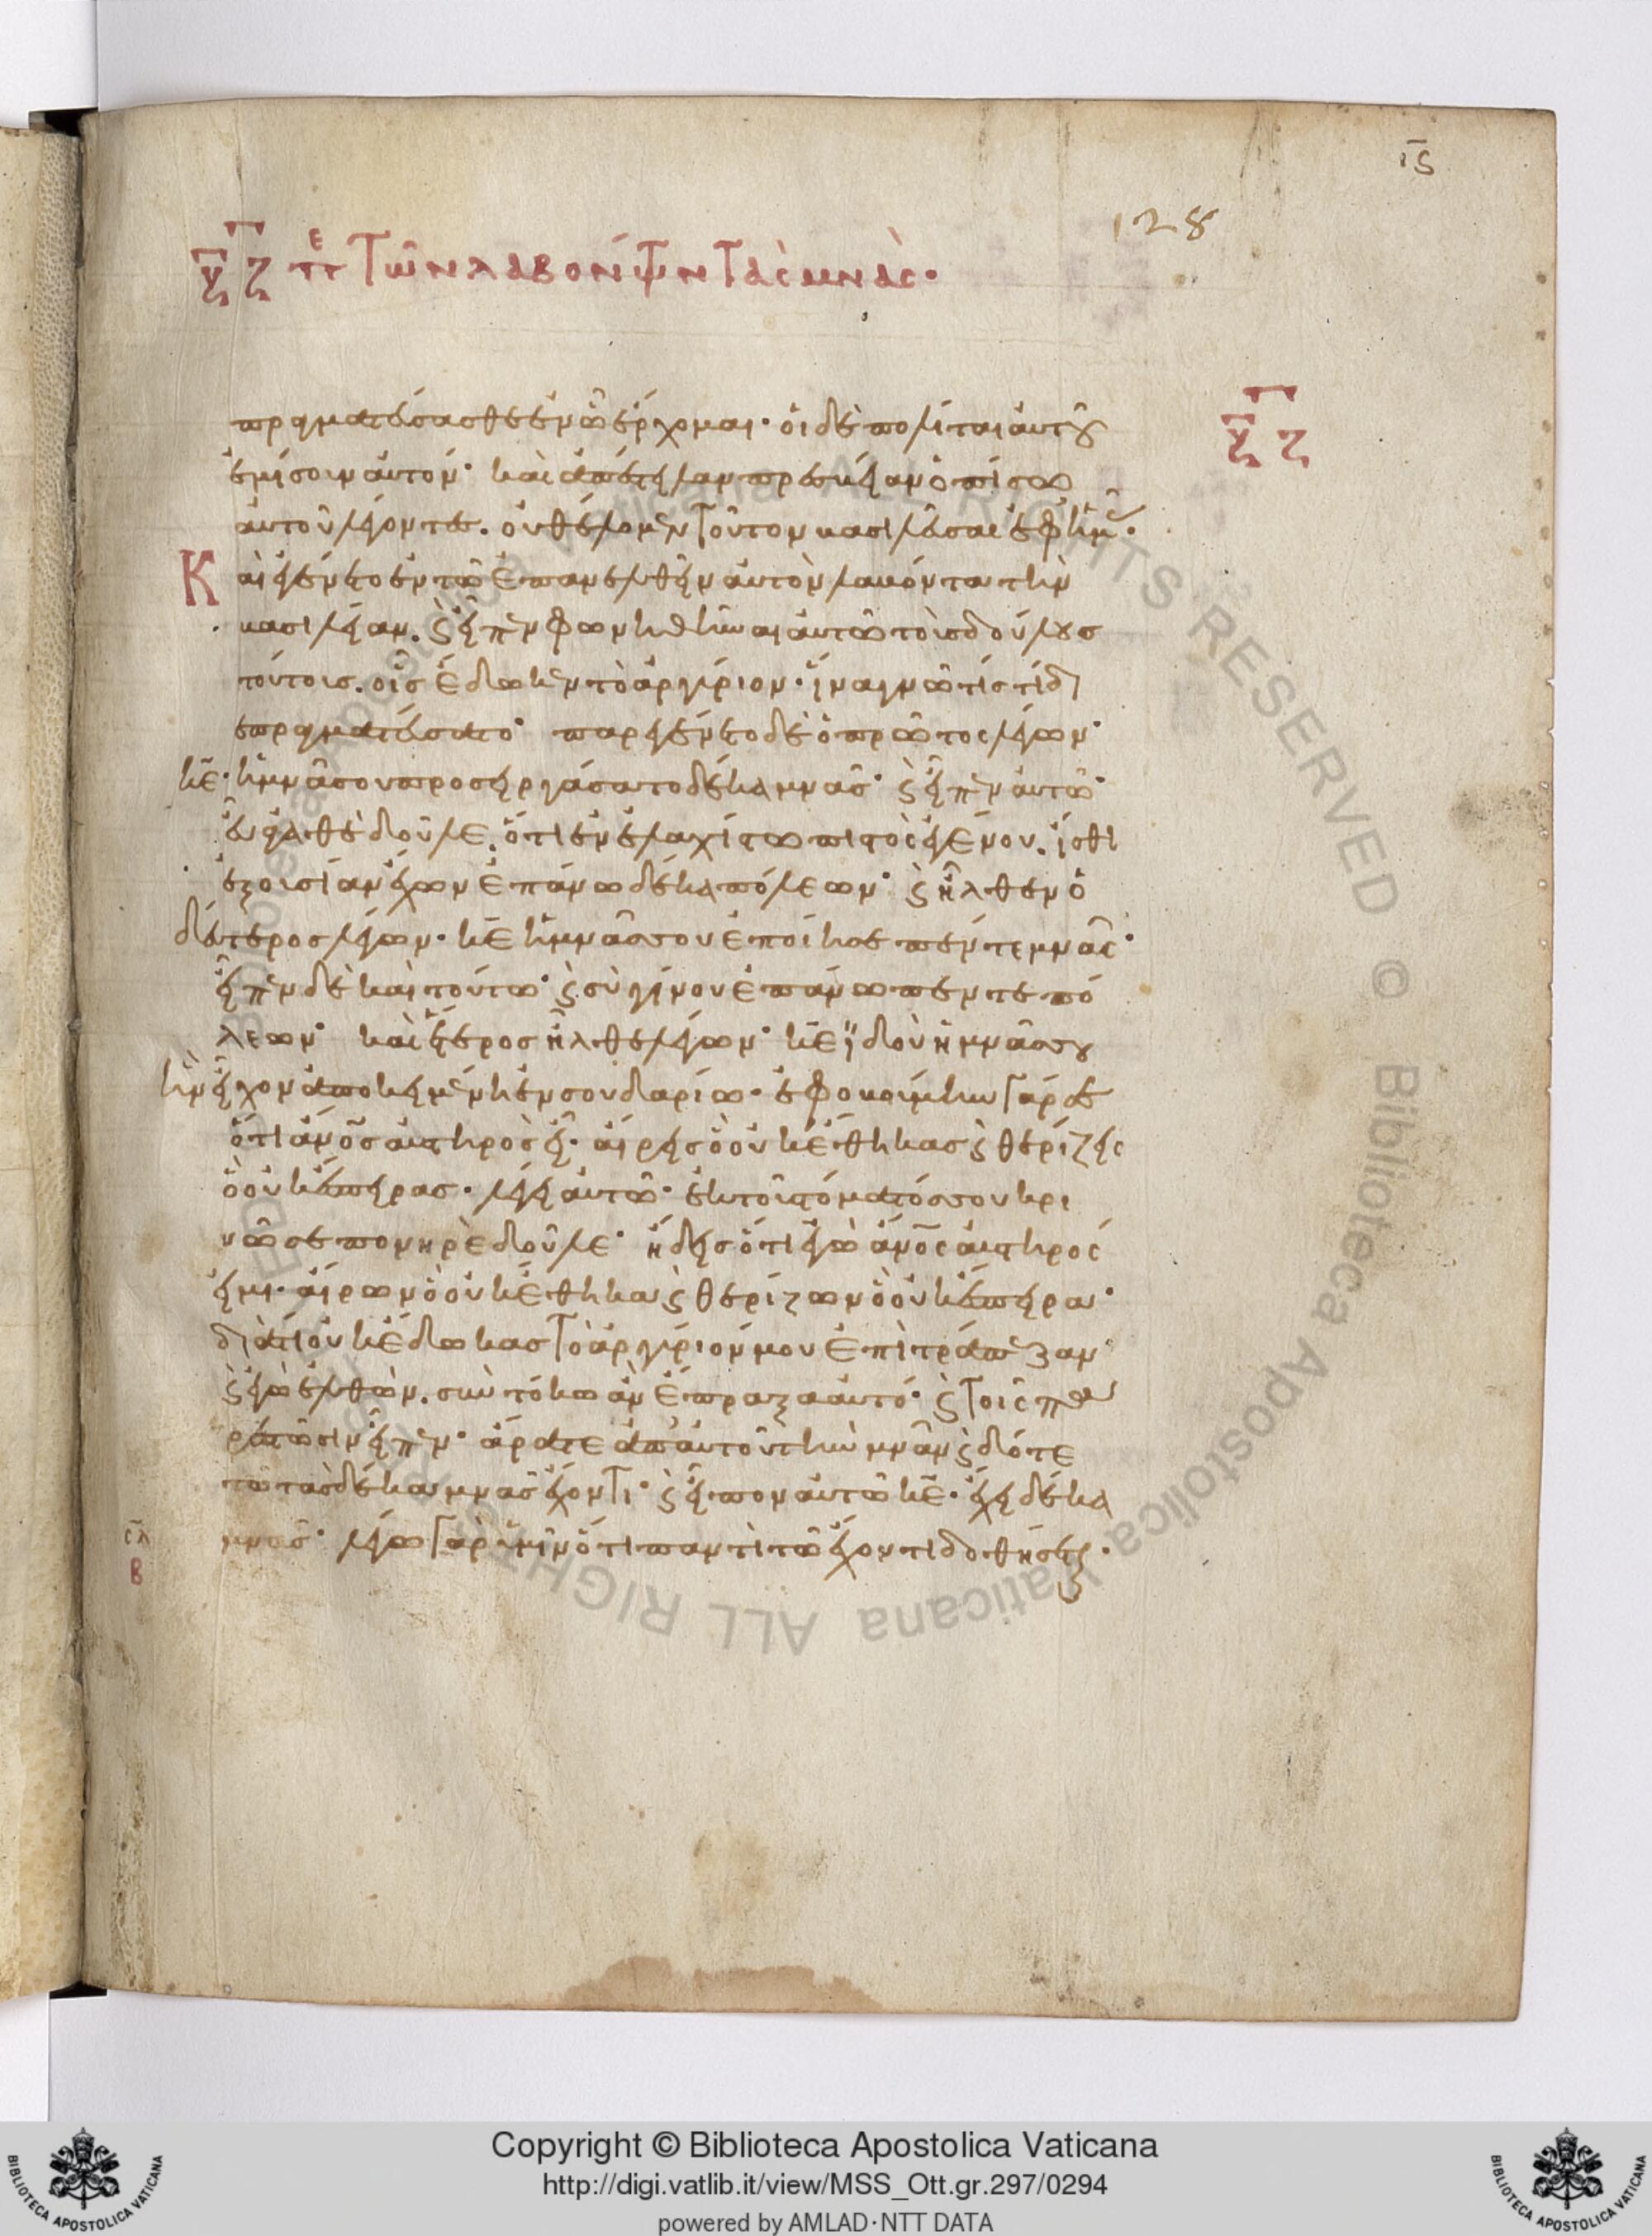 ις
128
ξζ πε τῶν λαβόντων τὰς μνάς·
πραγματεύσασθε ἐν ᾧ ἔρχομαι· οἱ δὲ πολίται αὐτοῦ
ξζ
ἐμίσουν αὐτόν· καὶ ἀπέστειλαν πρεσβείαν ὀπίσω
αὐτοῦ λέγοντες. οὐ θέλομεν τοῦτον βασιλεῦσαι ἐφ ἡμᾶς·
Καὶ ἐγένετο ἐν τῶ ἐπανελθεῖν αὐτὸν λαβόντα τὴν
βασιλείαν. ϛ εἶπεν φωνηθῆναι αὐτῶ τοὺς δούλους
τούτοις. οἷς ἔδωκεν τὸ ἀργύριον· ἵνα γνῶ τίς τί δι
επραγματεύσατο· παρεγένετο δὲ ὁ πρῶτος λέγων·
κε· ἡ μνᾶ σου προσειργάσατο δέκα μνᾶς· ϛ εἶπεν αὐτῶ·
εὖ ἀγαθὲ δοῦλε. ὅτι ἐν ἐλαχίστω πιστὸς ἐγένου. ἴσθι
ἐξουσίαν ἔχων ἐπάνω δέκα πόλεων· ϛ ἦλθεν ὁ
δεύτερος λέγων· κε ἡ μνᾶ σου ἐποίησε πέντε μνᾶς·
εἶπεν δὲ καὶ τούτω· ϛ σὺ γίνου ἐπάνω πέντε πό
λεων· καὶ ἕτερος ἦλθε λέγων· κε ἰδοὺ ἡ μνᾶ σου
ἣν εἶχον ἀποκειμένην ἐν σουδαρίω· ἐφοβούμην γάρ σε
ὅτι ανος αὐστηρὸς εἶ· αἴρεις ὃ οὐκ ἔθηκας ϛ θερίζεις
ὃ οὐκ ἔσπειρας· λέγει αὐτῶ· ἐκ τοῦ στόματός σου κρι
νῶ σε πονηρὲ δοῦλε· ἤδεις ὅτι ἐγὼ ανος αὐστηρός
εἰμι· αἴρων ὃ οὐκ ἔθηκα ϛ θερίζων ὃ οὐκ ἔσπειρα·
διατί οὐκ ἔδωκας τὸ ἀργύριόν μου ἐπὶ τράπεζαν
ϛ ἐγὼ ἐλθὼν. σὺν τόκω ἂν ἔπραξα αὐτό· ϛ τοῖς παρε
στῶσιν εἶπεν· ἄρατε ἀπ αὐτοῦ τὴν μνᾶν ϛ δότε
τῶ τὰς δέκα μνᾶς ἔχοντι· ϛ εἶπον αὐτῶ κε· ἔχει δέκα
μνᾶς· λέγω γὰρ ὑμῖν ὅτι παντὶ τῶ ἔχοντι δοθήσεται·
σλ
β
Copyright © Biblioteca Apostolica Vaticana
http://digi.vatlib.it/view/MSS_Ott.gr.297/0294
powered by AMLAD·NTT DATA
BIBLIOTECA APOSTOLICA VATICANA
BIBLIOTECA APOSTOLICA VATICANA
© Biblioteca Apostolica Vaticana ALL RIGHTS RESERVED